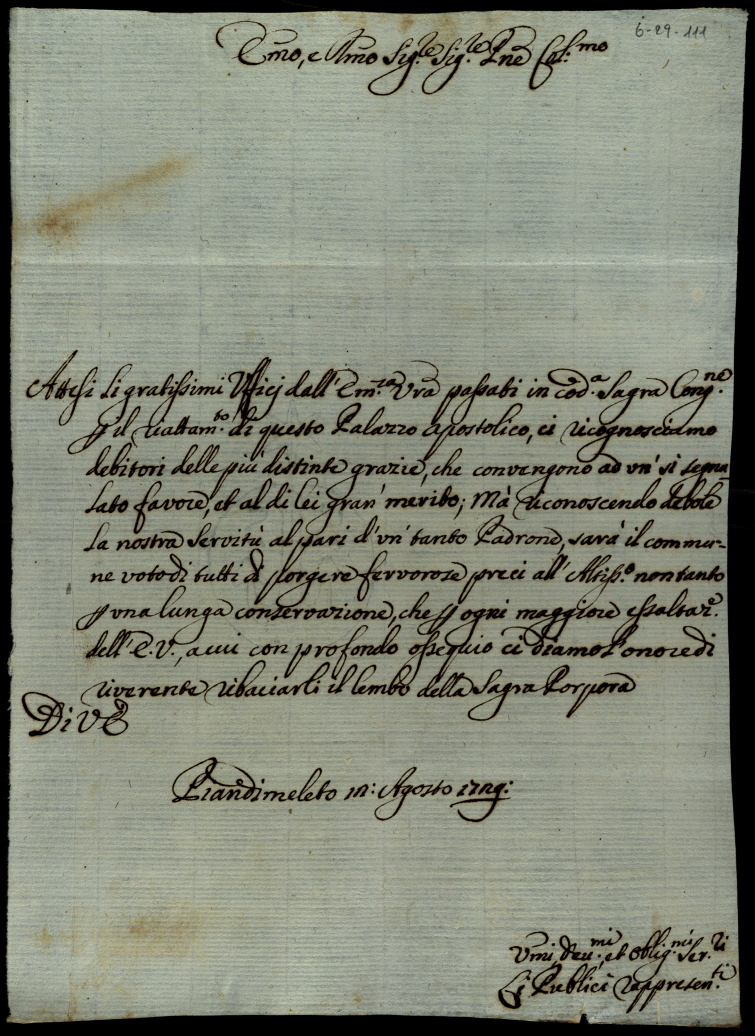 6-29-111
Emo, e Rmo Sig.re Sig.re Pne Col.mo
Attesi li gratissimi Ufficj dall'Em.za Vra passati in cod.a Sagra Cong.ne
p il riattam.to di questo Palazzo Apostolico, ci ricognosciamo
debitori delle più distinte grazie, che convengono ad vn' sì segna
lato favore, et al di lei gran' merito; Mà riconoscendo debole
la nostra servitù al pari d'vn' tanto Padrone, sarà il commu-
ne voto di tutti di porgere fervorose preci all'Altiss.o non tanto
p vna lunga conservazione, che p ogni maggiore essaltaz.e
dell'E.V., a cui con profondo ossequio ci diamo l'onore di
riverente ribaciarli il lembo della Sagra Porpora
Di V E
Piandimeleto Agosto 1729:
Vmi, deu.mi, et oblig.mi Ser.ri
Li Publici rappresen.ti